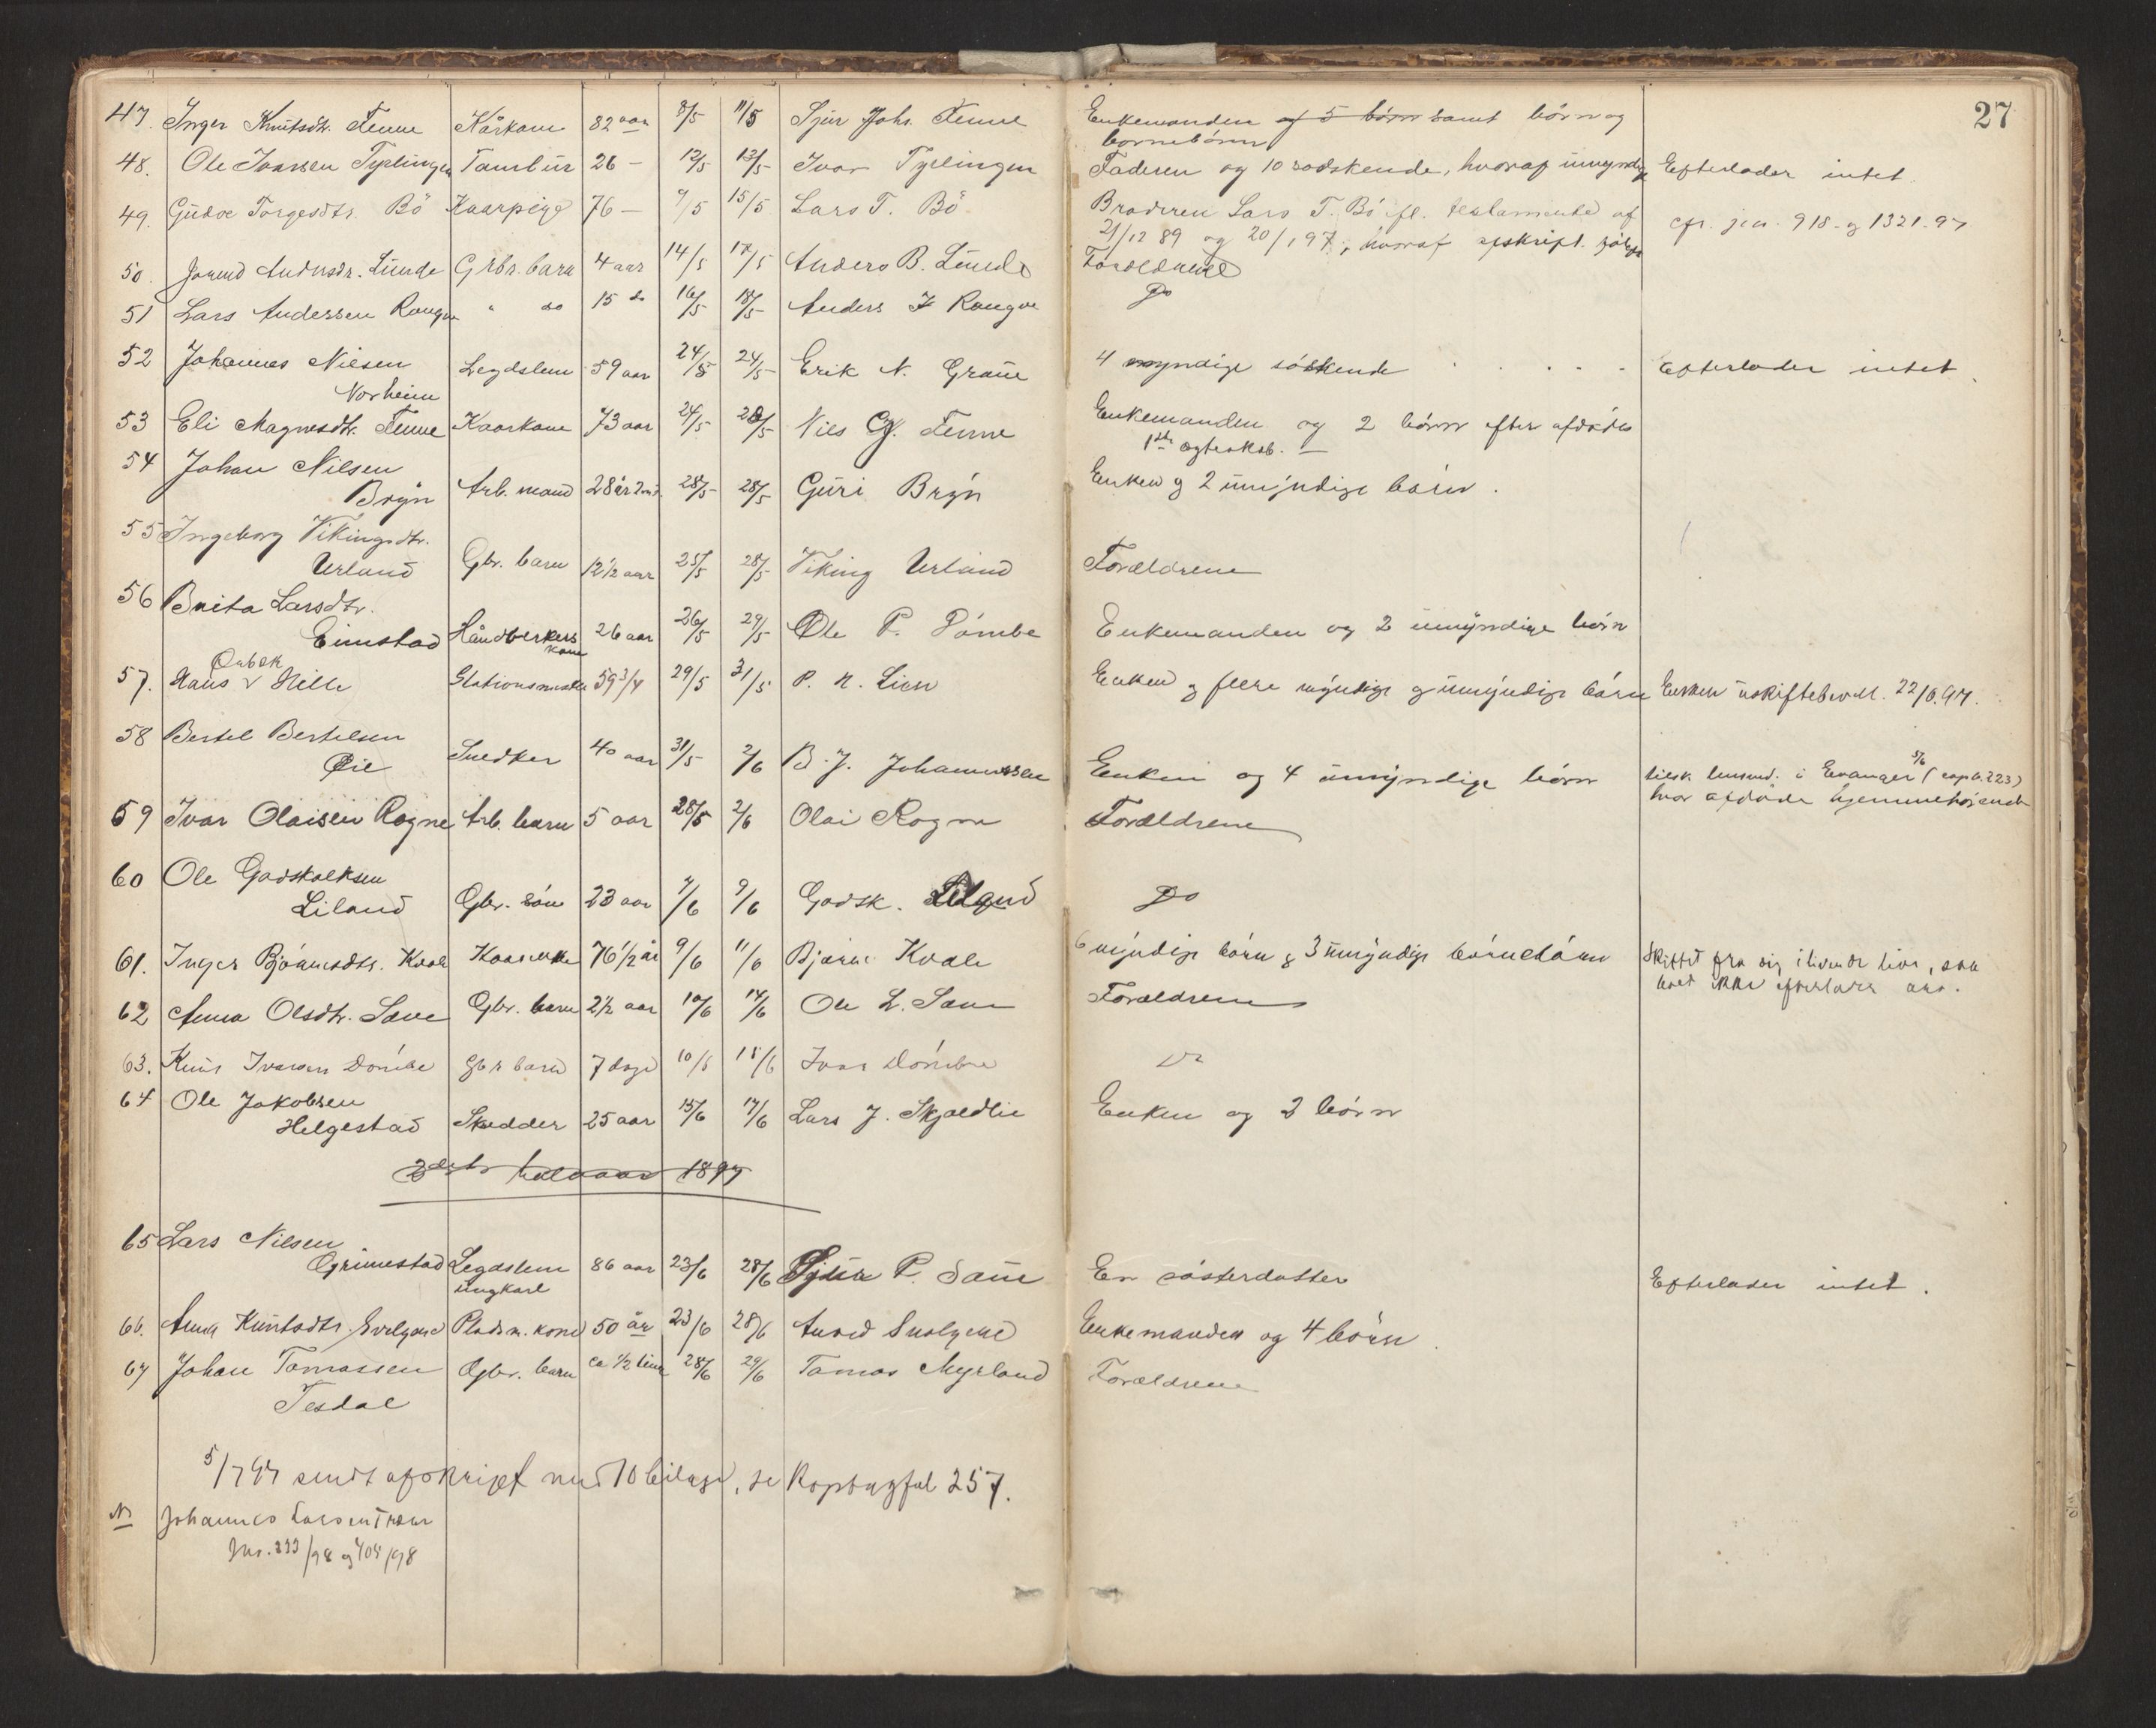 27
47. Inger Knutsdtr. Tenne Kårkone 82 aar 8/5 11/5 Sjur Johs. Tenne Enkemanden og 5 børn samt børn og
børnebørn
48. Ole Ivarsen Tyrlingen Tambur 26 — 12/5 13/5 Ivar Tyrlingen Faderen og 10 sødskende, hvoraf umyndige Efterlader intet.
49. Gudve Torgesdtr. Bö Kaarpige 76 — 9/5 15/5 Lars T. Bö Broderen Lars T. Bö ifl. testamente af cfr. jour. 918 og 1321.97
21/12 89 og 20/1 97, hvoraf afskript. følger
50. Anderssdr. Lunde Grbr. barn 4 aar 14/5 17/5 Anders B. Lunde Forældrene
51 Lars Anderssen Rongve " do 15 do 16/5 18/5 Anders I Rongve Do
52 Johannes Nilsen
Norheim Legdslem 59 aar 24/5 24/5 Erik N. Graue 4 myndige söskende . . . . - Efterlader intet.
53 Eli Magnesdtr. Tenne Kaarkone 73 aar 24/5 28/5 Nils G. Tenne Enkemanden og 2 börn efter afdødes
1ste ægteskab. —
54 Johan Nilsen
Bryn Arb. mand 28 år 2 md. 28/5 28/5 Guri Bryn Enken og 2 umyndige börn.
55 Ingeborg Vikingsdtr.
Urland Gbr. barn 12 1/2 aar 25/5 28/5 Viking Urland Forældrene
56 Brita Larsdtr.
Eimstad Håndverkers
kone 26 aar 26/5 29/5 Ole P. Dömbe Enkemanden og 2 umyndige börn
57. Hans v Helle Stationsmester 59 3/4 29/5 31/5 P. N. Lien Enken og flere myndige og umyndige börn Enken uskiftebevill. 22/6.97.
58 Bertel Bertelsen
Øie Snedker 40 aar 31/5 2/6 B. J. Johannessen Enken og 4 umyndige börn tilsk. lensmd. i Evanger 5/6 (kopb. 223)
hvor afdøde hjemmehørende
59 Ivar Olaisen Rogne Arb. barn 5 aar 28/5 2/6 Olai Rogne Forældrene
60 Ole Godskalksen
Liland Gbr. sön 23 aar 7/6 9/6 Godsk. Liland Do
61. Inger Bjørnesdtr. Kvale Kaarenke 76 1/2 år 9/6 11/6 Bjørne Kvale 6 myndige börn & 3 umyndige börnebörn Skiftet fra sig i levende live, saa
boet ikke efterlader
62 Anna Olsdtr. Saue Gbr. barn 2 1/2 aar 10/6 14/6 Ole L. Saue Forældrene
63. Knut Ivarsen Dömbe Gbr barn 7 dage 10/6 15/6 Ivar Dömbe Do
64 Ole Jakobsen
Helgestad Skredder 25 aar 15/6 17/6 Lars J. Skjeldlie Enken og 2 börn
2det halvaar 1897
65 Lars Nilsen
Grimestad Legdslem
ungkarl 86 aar 23/6 28/6 Sjur P. Saue En søsterdatter Efterlader intet.
66. Anna Knutsdtr. Pladsm. kone 50 år 23/6 28/6 Enkemanden og 4 börn.
67 Johan Tomassen
Tesdal Gbr. barn ca 1/2 time 28/6 29/6 Tomas Myrland Forældrene
5/7 97 sendt afskrift med 10 bilage, se Kopbog fol 257.
N Johannes Larsen
Jno. 333/98 og 404/98